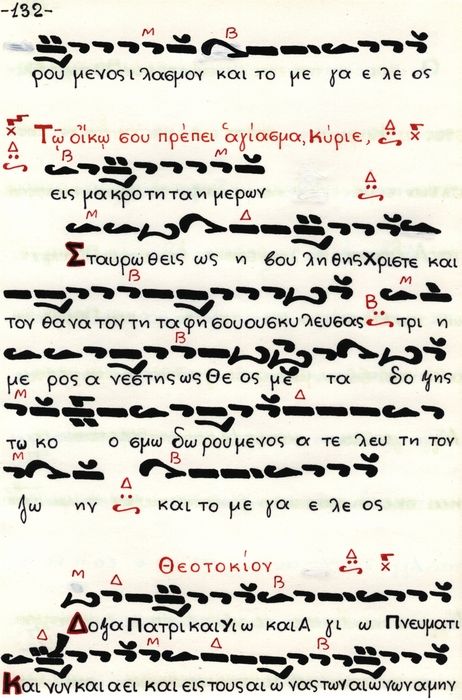 -132-
ρου μενος ι λασμον και το με γα ε λε ος
Τῶ οἴκω σου πρέπει ἁγίασμα, Κύριε,
εις μα κρο τη τα η μερων
Σταυρω θεις ως η βου λη θης Χριστε και
τον θα να τον τη τα φη σου ου σκυ λευσας τρι η
με ρος α νεστης ως Θε ος με τα δο ξης
τω κο ο σμω δω ρου μενος α τε λευ τη τον
ζω ην και το με γα ε λε ος
Θεοτοκίον
Δοξα Πατρι και Υι ω και Α γι ω Πνευματι
Και νυν και α ει και εις τους αι ω νας των αι ω νων αμην